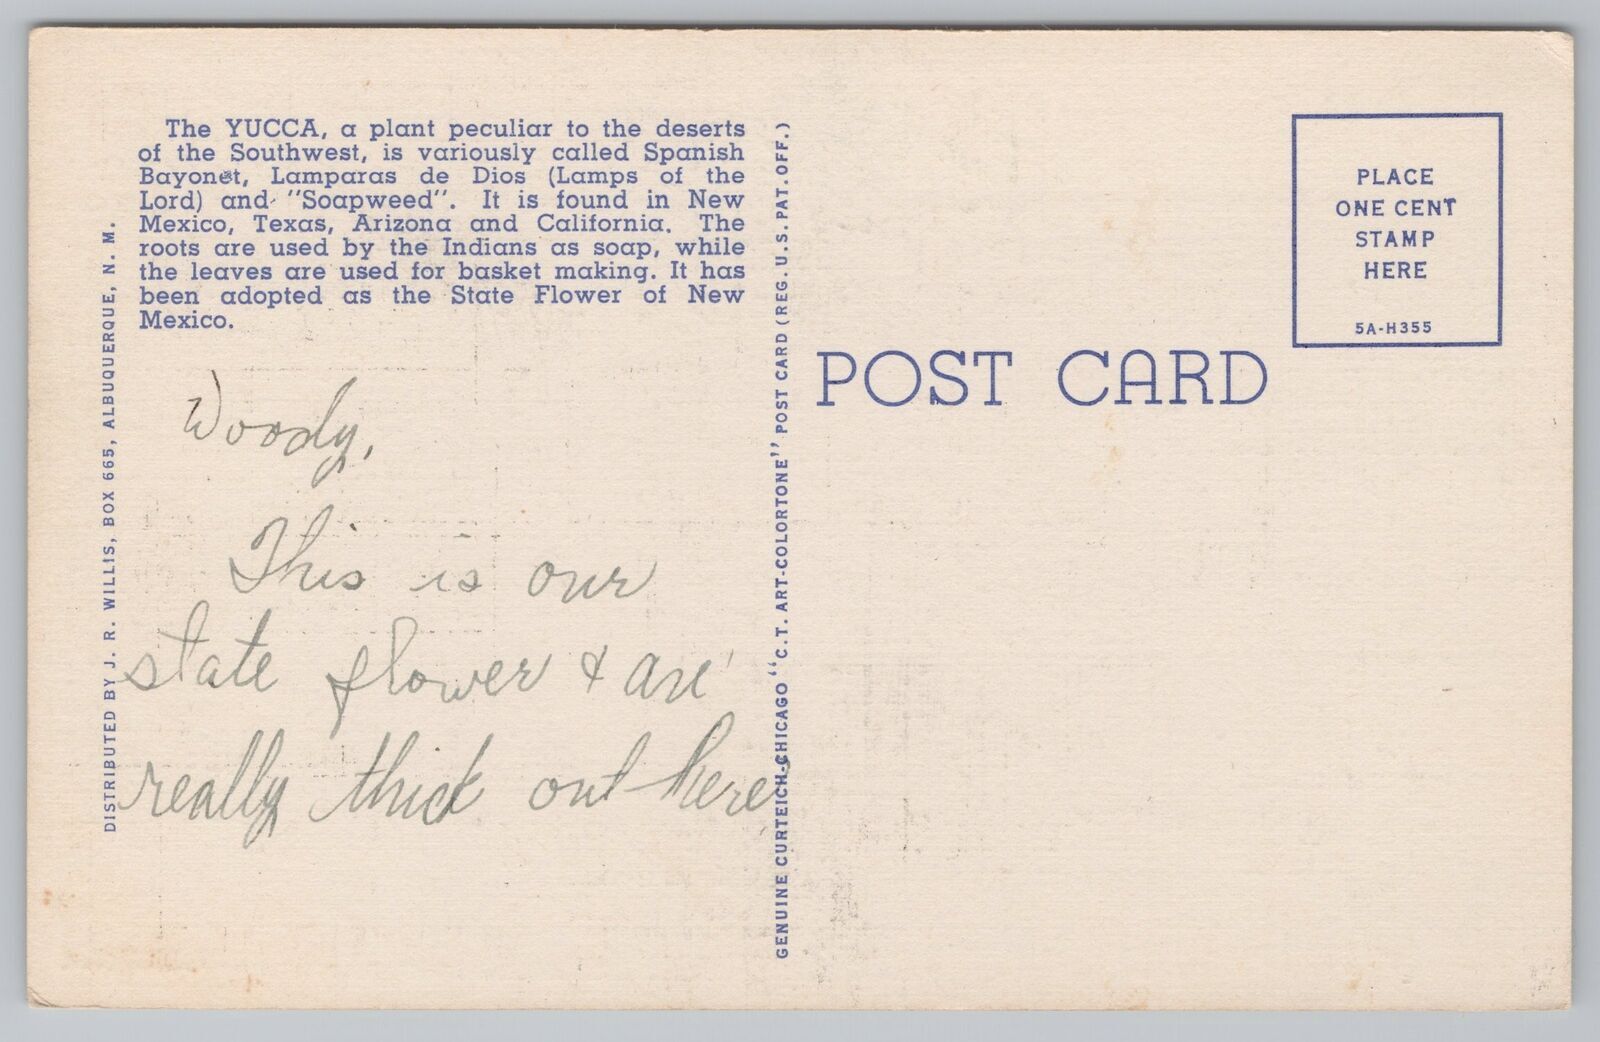 The YUCCA, a plant peculiar to the deserts
of the Southwest, is variously called Spanish
Bayonet, Lamparas de Dios (Lamps of the
Lord) and "Soapweed". It is found in New
Mexico, Texas, Arizona and California. The
roots are used by the Indians as soap, while
the leaves are used for basket making. It has
been adopted as the State Flower of New
Mexico.
DISTRIBUTED BY J. R. WILLIS, BOX 665, ALBUQUERQUE, N. M.
Woody,
This is our
state flower & are
really thick out here
GENUINE CURTEICH-CHICAGO "C.T. ART-COLORTONE" POST CARD (REG. U.S. PAT. OFF.)
POST CARD
PLACE
ONE CENT
STAMP
HERE
5A-H355